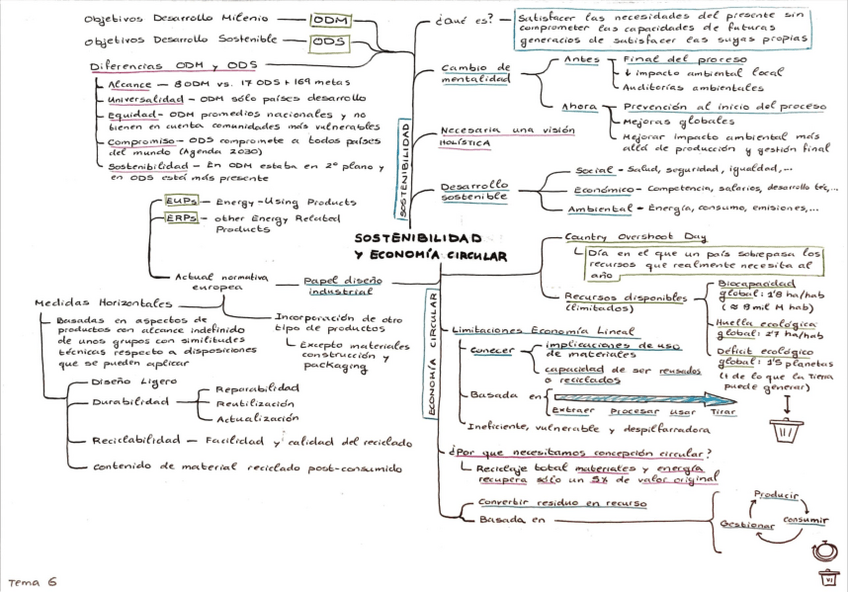 Objetivos Desarrollo Milenio — ODM
Objetivos Desarrollo Sostenible — ODS
Diferencias ODM y ODS
Alcance — 8 ODM vs. 17 ODS + 169 metas
Universalidad — ODM sólo países desarrollo
Equidad — ODM promedios nacionales y no
tienen en cuenta comunidades más vulnerables
Compromiso — ODS compromete a todos países
del mundo (Agenda 2030)
Sostenibilidad — En ODM estaba en 2º plano y
en ODS está más presente
EUPs — Energy-Using Products
ERPs — other Energy Related
Products
Actual normativa
europea
Papel diseño
industrial
Medidas Horizontales
Basadas en aspectos de
productos con alcance indefinido
de unos grupos con similitudes
técnicas respecto a disposiciones
que se pueden aplicar
Incorporación de otro
tipo de productos
Excepto materiales
construcción y
packaging
Diseño Ligero
Durabilidad
Reparabilidad
Reutilización
Actualización
Reciclabilidad — Facilidad y calidad del reciclado
contenido de material reciclado post-consumido
SOSTENIBILIDAD
Y ECONOMÍA CIRCULAR
SOSTENIBILIDAD
¿Qué es? — Satisfacer las necesidades del presente sin
comprometer las capacidades de futuras
generacios de satisfacer las suyas propias
Cambio de
mentalidad
Antes
Final del proceso
↓ impacto ambiental local
Auditorías ambientales
Ahora
Prevención al inicio del proceso
Mejoras globales
Mejorar impacto ambiental más
allá de producción y gestión final
Necesaria una visión
HOLÍSTICA
Desarrollo
sostenible
Social - Salud, seguridad, igualdad,...
Económico - Competencia, salarios, desarrollo téc,...
Ambiental - Energía, consumo, emisiones,...
ECONOMÍA CIRCULAR
Country Overshoot Day
Día en el que un país sobrepasa los
recursos que realmente necesita al
año
Recursos disponibles
(limitados)
Biocapacidad
global: 1'8 ha/hab
(≈ 8 mil M hab)
Huella ecológica
global: 2'7 ha/hab
Déficit ecológico
global: 1'5 planetas
(↑ de lo que la Tierra
puede generar)
Limitaciones Economía Lineal
Conocer
implicaciones de uso
de materiales
capacidad de ser reusados
o reciclados
Basada en
Extraer Procesar usar Tirar
Ineficiente, vulnerable y despilfarradora
¿Por que necesitamos concepción circular?
Reciclaje total materiales y energía
recupera sólo un 5% de valor original
Convertir residuo en recurso
Basada en
Producir
consumir
Gestionar
Tema 6